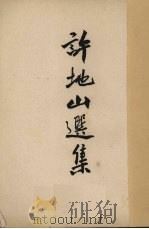 許地山選集